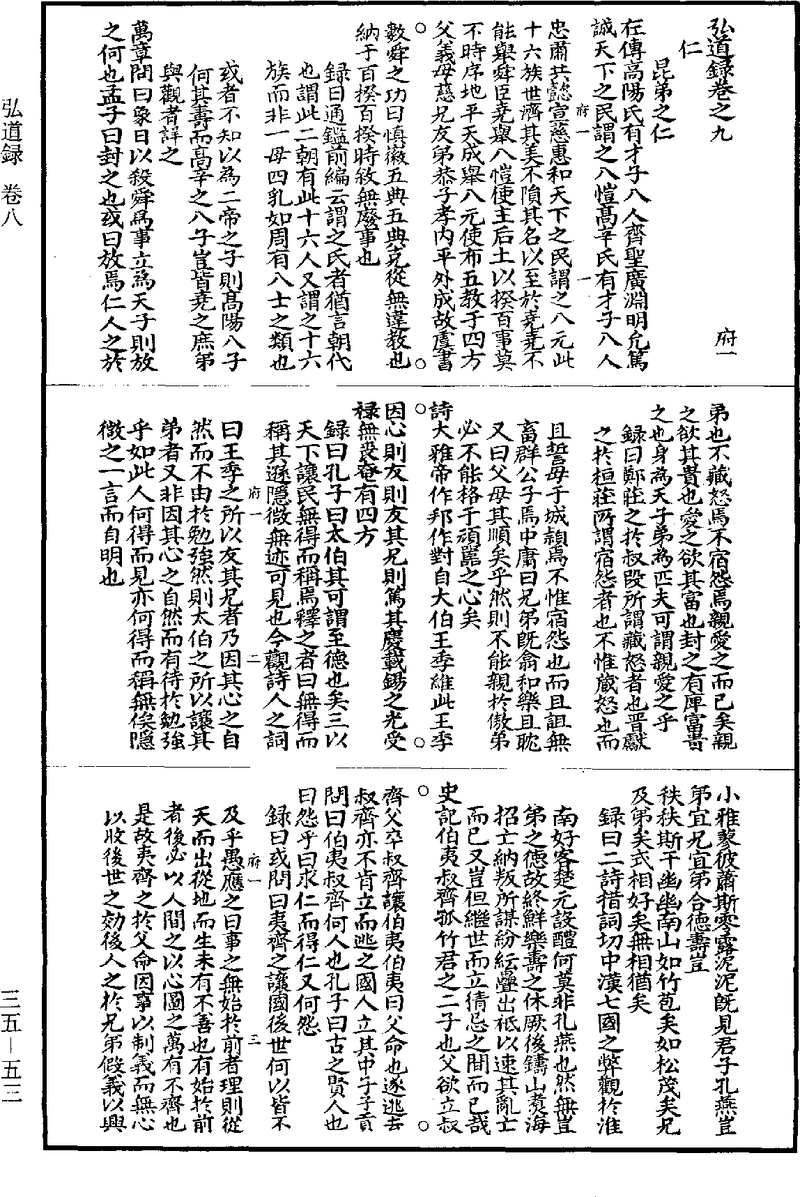 弘道録 卷八
三五—五三
弘道録卷之九
府一
仁
昆弟之仁
在傳高陽氏有才子八人齊聖廣淵明允篤
誠天下之民謂之八愷高辛氏有才子八人
府一
一
忠肅共懿宣慈惠和天下之民謂之八元此
十六族世濟其美不隕其名以至於堯堯不
能舉舜臣堯舉八愷使主后土以揆百事莫
不時序地平天成舉八元使布五教于四方
父義母慈兄友弟恭子孝內平外成故虞書
數舜之功曰慎徽五典五典克從無違教也
納于百揆百揆時敘無廢事也
錄曰通鑑前編云謂之氏者猶言朝代
也謂此二朝有此十六人又謂之十六
族而非一母四乳如周有八士之類也
或者不知以為二帝之子則高陽八子
何其壽而高辛之八子豈皆堯之庶弟
與觀者詳之
萬章問曰象日以殺舜為事立為天子則放
之何也孟子曰封之也或曰放焉仁人之於
弟也不藏怒焉不宿怨焉親愛之而已矣親
之欲其貴也愛之欲其富也封之有庳富貴
之也身為天子弟為匹夫可謂親愛之乎
錄曰鄭莊之於叔段所謂藏怒者也晉獻
之於桓莊所謂宿怨者也不惟藏怒也而
且誓母于城潁焉不惟宿怨也而且詛無
畜群公子焉中庸曰兄弟既翕和樂且耽
又曰父母其順矣乎然則不能親於傲弟
必不能格于頑嚚之心矣
詩大雅帝作邦作對自大伯王季維此王季
因心則友則友其兄則篤其慶載錫之光受
祿無喪奄有四方
錄曰孔子曰太伯其可謂至德也矣三以
天下讓民無得而稱焉釋之者曰無得而
稱其遜隱微無迹可見也今觀詩人之詞
府一
二
曰王季之所以友其兄者乃因其心之自
然而不由於勉強然則太伯之所以讓其
弟者又非因其心之自然而有待於勉強
乎如此人何得而見亦何得而稱無俟隱
微之一言而自明也
小雅蓼彼蕭斯零露泥泥既見君子孔燕豈
弟宜兄宜弟令德壽豈
秩秩斯干幽幽南山如竹苞矣如松茂矣兄
及弟矣式相好矣無相猶矣
錄曰二詩措詞切中漢七國之弊觀於淮
南好客楚元設醴何莫非孔燕也然無豈
弟之德故終鮮樂壽之休厥後鑄山煮海
招亡納叛所謀紛紜疊出祗以速其亂亡
而已又豈但繼世而立猜忌之間而已哉
史記伯夷叔齊孤竹君之二子也父欲立叔
齊父卒叔齊讓伯夷伯夷曰父命也遂逃去
叔齊亦不肯立而逃之國人立其中子子貢
問曰伯夷叔齊何人也孔子曰古之賢人也
曰怨乎曰求仁而得仁又何怨
錄曰或問曰夷齊之讓國後世何以皆不
府一
三
及乎愚應之曰事之無始於前者理則從
天而出從地而生未有不善也有始於前
者後必以人間之以心圖之萬有不齊也
是故夷齊之於父命因事以制義而無心
以收後世之効後人之於兄弟假義以興